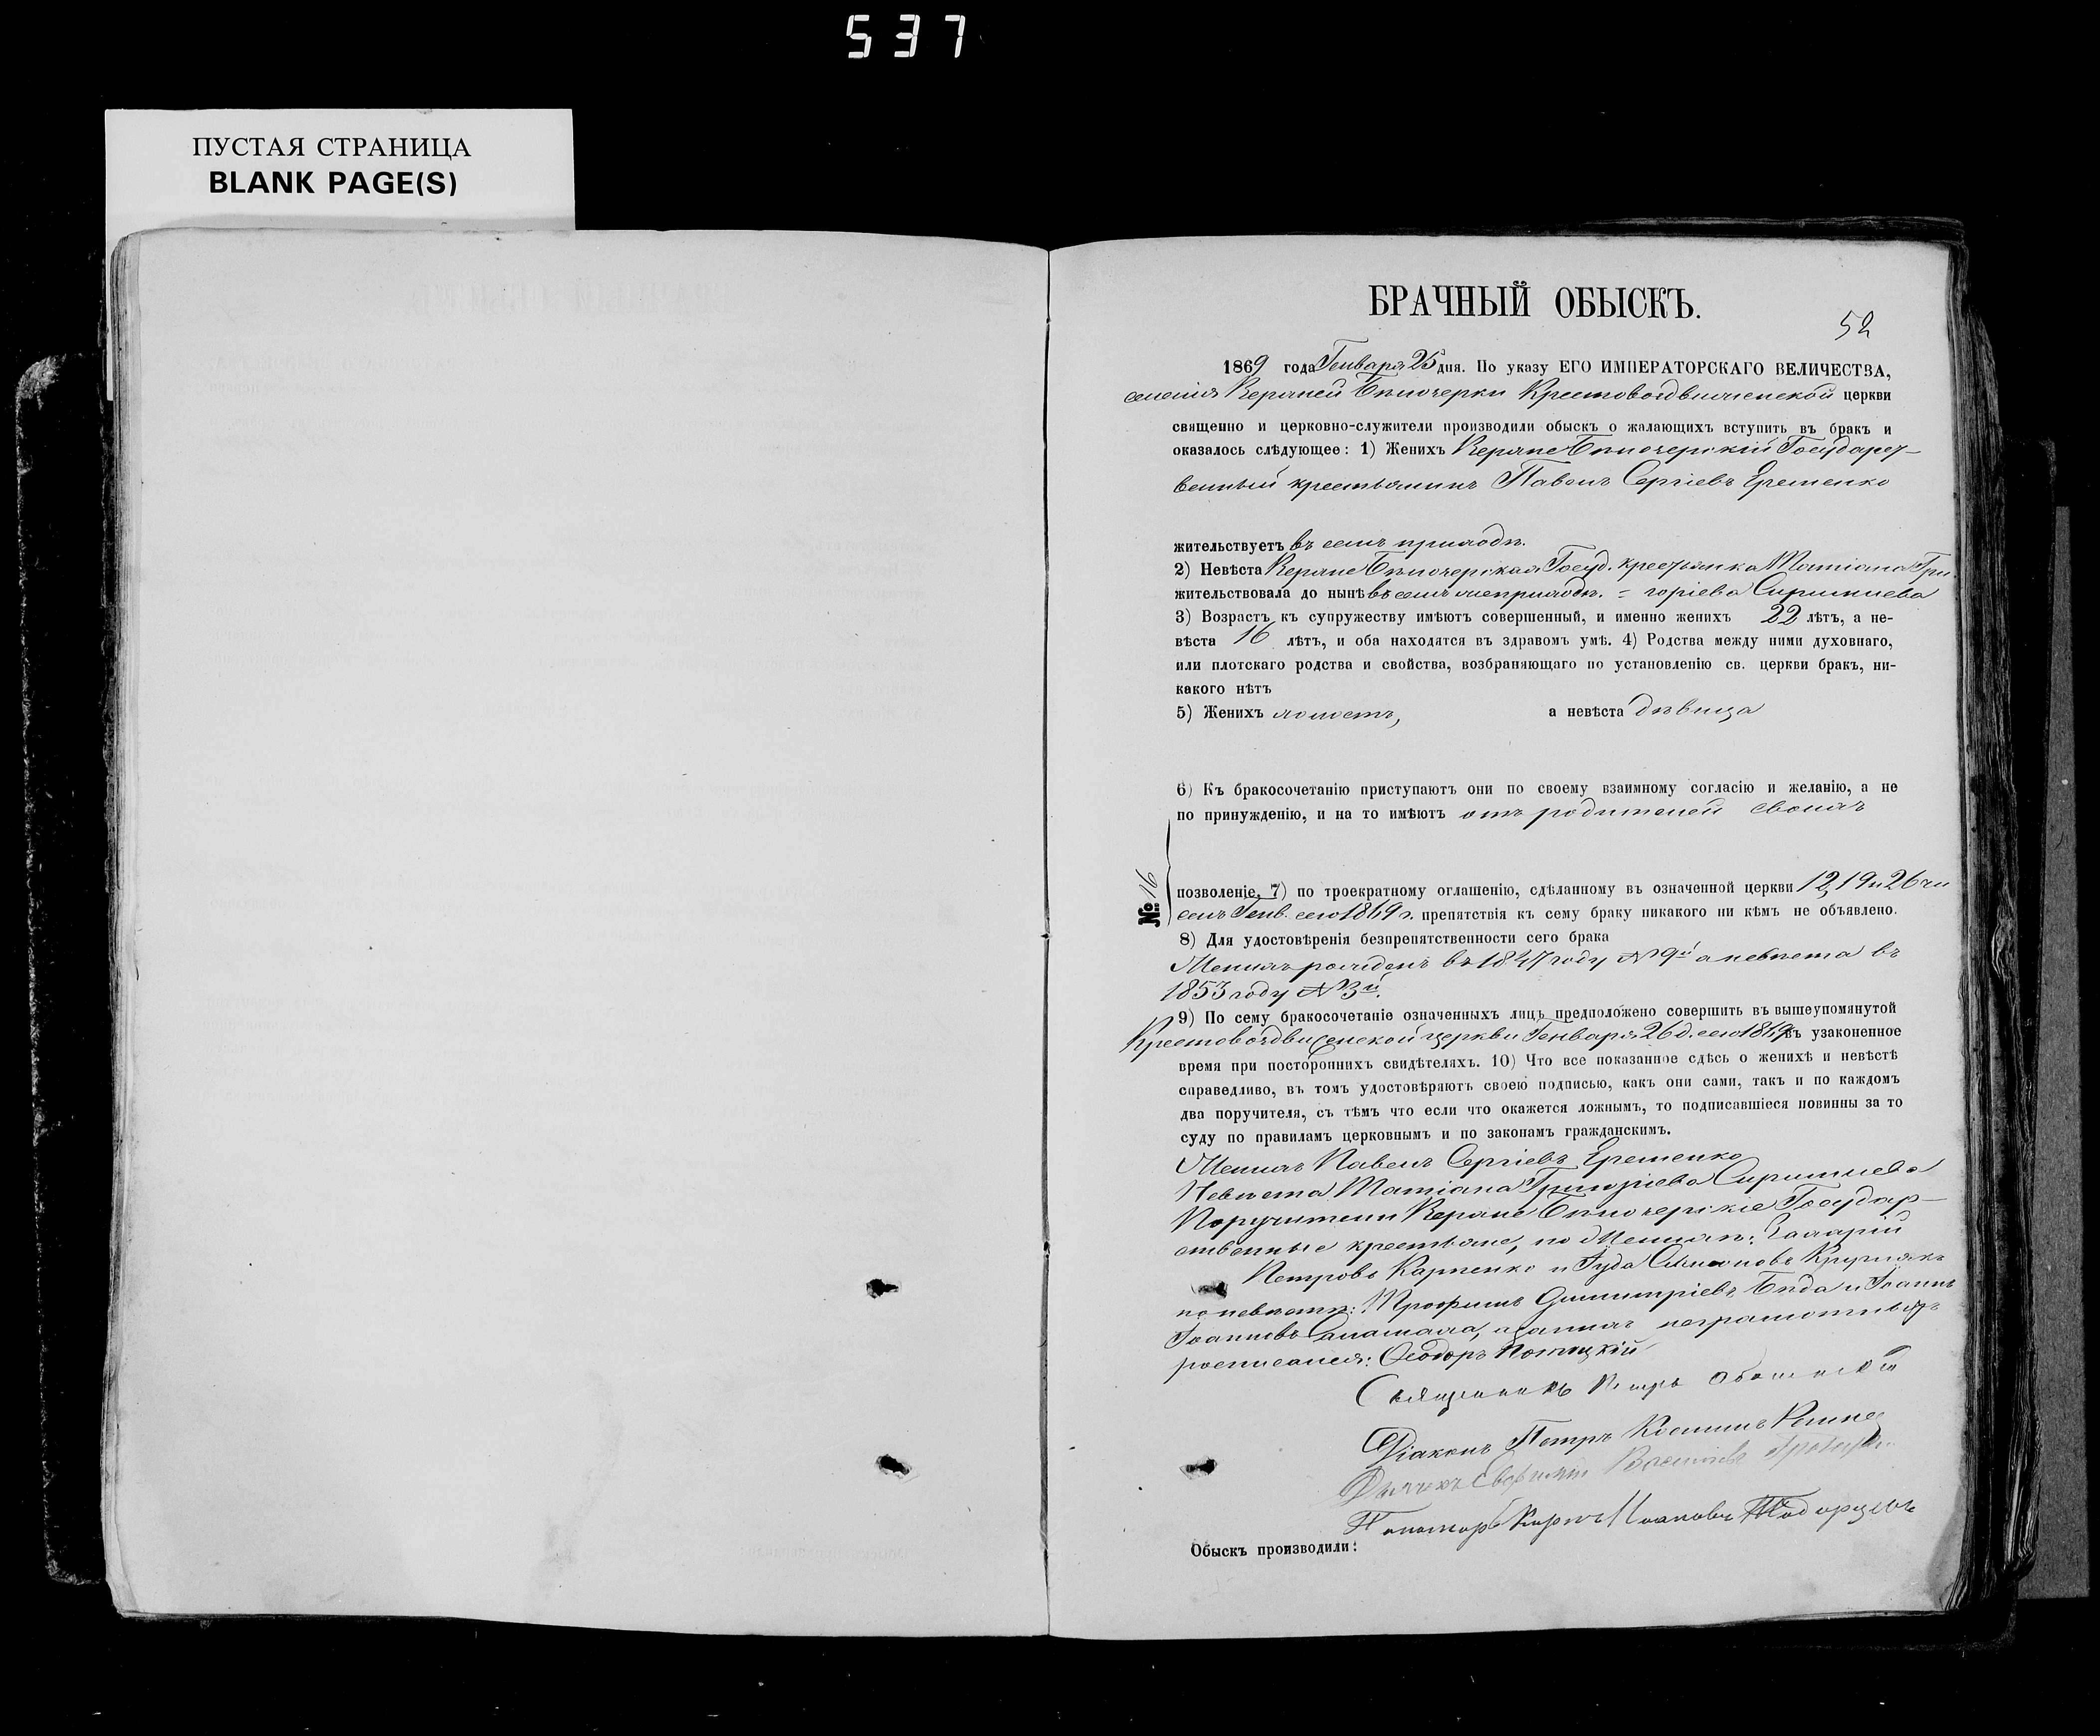 537
ПУСТАЯ СТРАНИЦА
BLANK PAGE(S)
БРАЧНЫЙ ОБЫСКЪ.
52
1869 года Генваря 25 дня. По указу ЕГО ИМПЕРАТОРСКАГО ВЕЛИЧЕСТВА,
селенія Верхней Бѣлозерки Крестовоздвиженской церкви
священно и церковно-служители производили обыскъ о жалающихъ вступить въ бракъ и
оказалось слѣдующее: 1) Женихъ Верхне Бѣлозерскій Государст-
венный крестьянинъ Павелъ Сергіевъ Еременко
жительствуетъ въ семъ приходѣ.
2) Невѣста Верхне Бѣлозерская Госуд. крестьянка Татіана Гри
жительствовала до нынѣ въ семъ же приходѣ. = горіева
3) Возрастъ къ супружеству имѣютъ совершенный, и именно женихъ 22 лѣтъ, а не-
вѣста 16 лѣтъ, и оба находятся въ здравомъ умѣ. 4) Родства между ними духовнаго,
или плотскаго родства и свойства, возбраняющаго по установленію св. церкви бракъ, ни-
какого нѣтъ
5) Женихъ холостъ, а невѣста дѣвица
6) Къ бракосочетанію приступаютъ они по своему взаимному согласію и желанію, а не
по принужденію, и на то имѣютъ отъ родителей своихъ
№ 16
позволеніе, 7) по троекратному оглашенію, сдѣланному въ означенной церкви 12, 19 и 26 чи
слъ Генв. сего 1869 г. препятствія къ сему браку никакого ни кѣмъ не объявлено.
8) Для удостовѣренія безпрепятственности сего брака
Женихъ рожденъ въ 1847 году № 9й а невѣста въ
1853 году № 3й.
9) По сему бракосочетаніе означенныхъ лицъ предположено совершить въ вышеупомянутой
Крестовоздвиженской церкви Генваря 26 д. сего 1869 въ узаконенное
время при постороннихъ свидѣтеляхъ. 10) Что все показанное сдѣсь о женихѣ и невѣстѣ
справедливо, въ томъ удостовѣряютъ своею подписью, какъ они сами, такъ и по каждомъ
два поручителя, съ тѣмъ что если что окажется ложнымъ, то подписавшіеся повинны за то
суду по правиламъ церковнымъ и по законамъ гражданскимъ.
Женихъ Павелъ Сергіевъ Еременко
Невѣста Татіана Григоріева
Поручители Верхне Бѣлозерскіе Государ-
ственные крестьяне, по Женихѣ: Захарій
Петровъ Карпенко и Іуда
по невѣстѣ: Трофимъ Димитріевъ Бѣда и Іоаннъ
Іоанновъ а за нихъ неграмотныхъ
росписался: Ѳеодоръ
Священникъ Петръ
Діаконъ Петръ
Дьячекъ Евфимій
Пономарь Карпъ Іоановъ
Обыскъ производили: